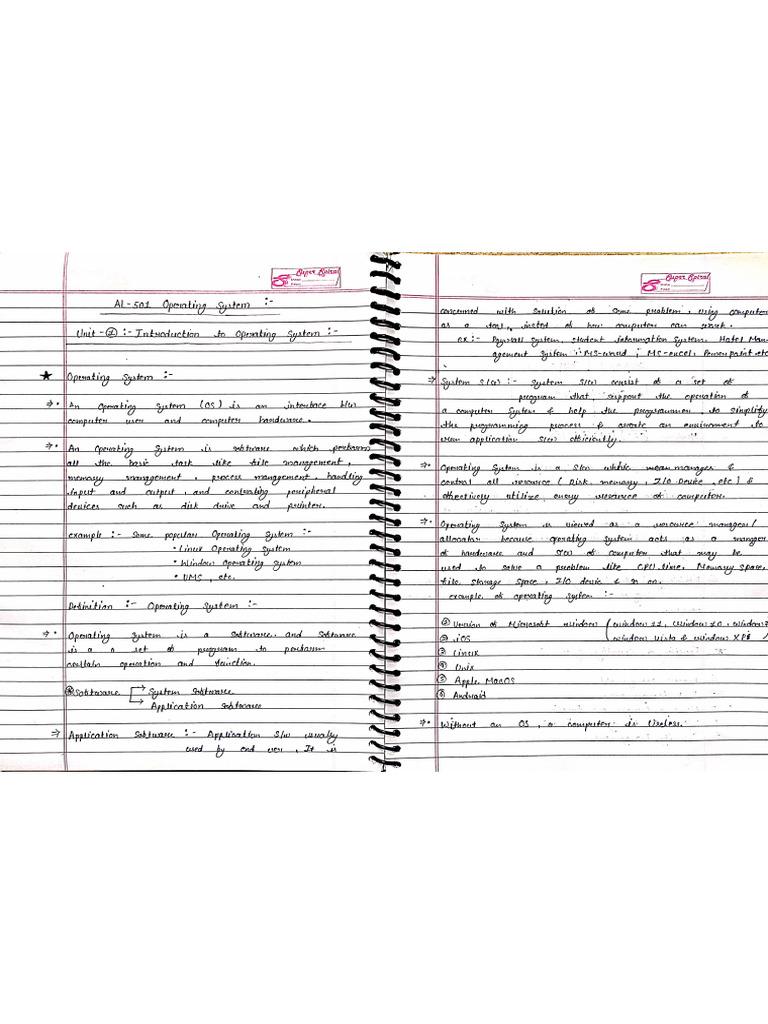 Super Spiral
AL-501 Operating System :-
Unit-① :- Introduction to Operating System :-
★ Operating System :-
⇒• An Operating System (OS) is an interface b/w
computer user and computer hardware.
⇒• An Operating System is software which perform
all the basic task like file management,
memory management, process management, handling
input and output, and controlling peripheral
devices such as disk drive and printer.
example :- Some popular Operating System :-
• Linux Operating System
• Window Operating System
• VMS, etc.
Definition :- Operating System :-
⇒• Operating System is a software and software
is a a set of program to perform
certain operation and function.
Software → System software
→ Application software
⇒ Application Software :- Application S/w usually
used by end user, It is
Super Spiral
concerned with solution of some problem, using computer
as a tool, insted of how computer can work.
ex:- Payroll System, student information System, Hotel Man-
agement System MS-word ; MS-excel, Powerpoint etc
⇒ System S/w :- System S/w consist of a set of
program that, support the operation of
a computer System & help the programmer to simplify
the programming process & create an environment to
run application S/w efficiently.
⇒• Operating System is a S/w manager &
control all resource (Disk, memory, I/O Device, etc) &
effectively utilize every resource of computer.
⇒• Operating System is viewed as a resource manager/
allocator because operating system acts as a manager
of hardware and S/w of computer that may be
used to solve a problem like CPU time, Memory space,
file storage space, I/O device & so on.
example of operating system :-
① Version of Microsoft window (window 11, window 10, window 7
② iOS window vista & window XP)
③ Linux
④ Unix
⑤ Apple MacOS
⑥ Android
⇒• Without an OS, a computer is Useless.